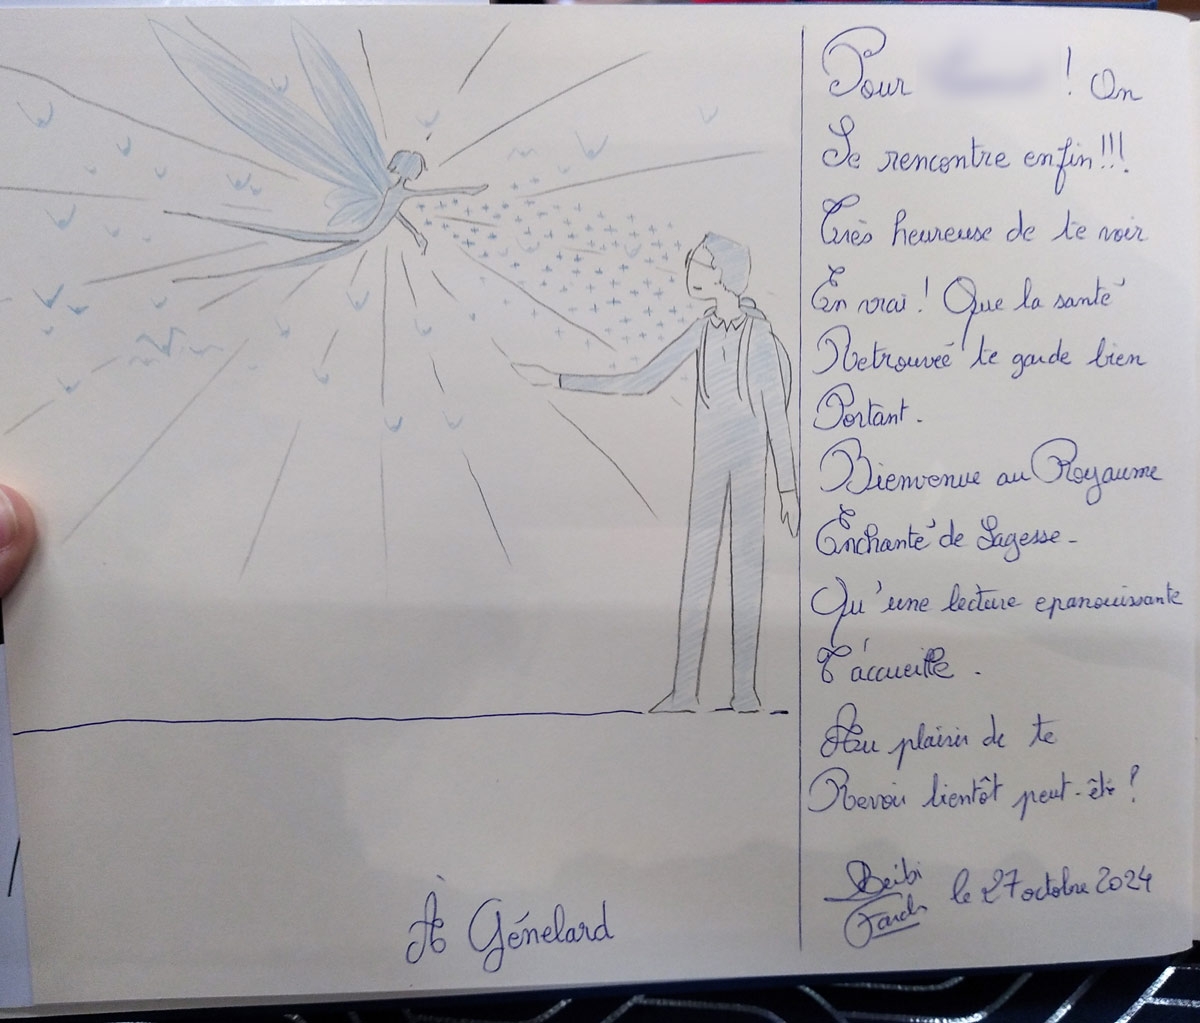 Pour ! On
Se rencontre enfin!!!
Très heureuse de te voir
En vrai! Que la santé
Retrouvée te garde bien
Portant.
Bienvenue au Royaume
Enchanté de Sagesse-
Qu'une lecture epanouissante
T'accueille.
Au plaisir de te
Revoir bientôt peut-être!
le 27 octobre 2024
À Génelard